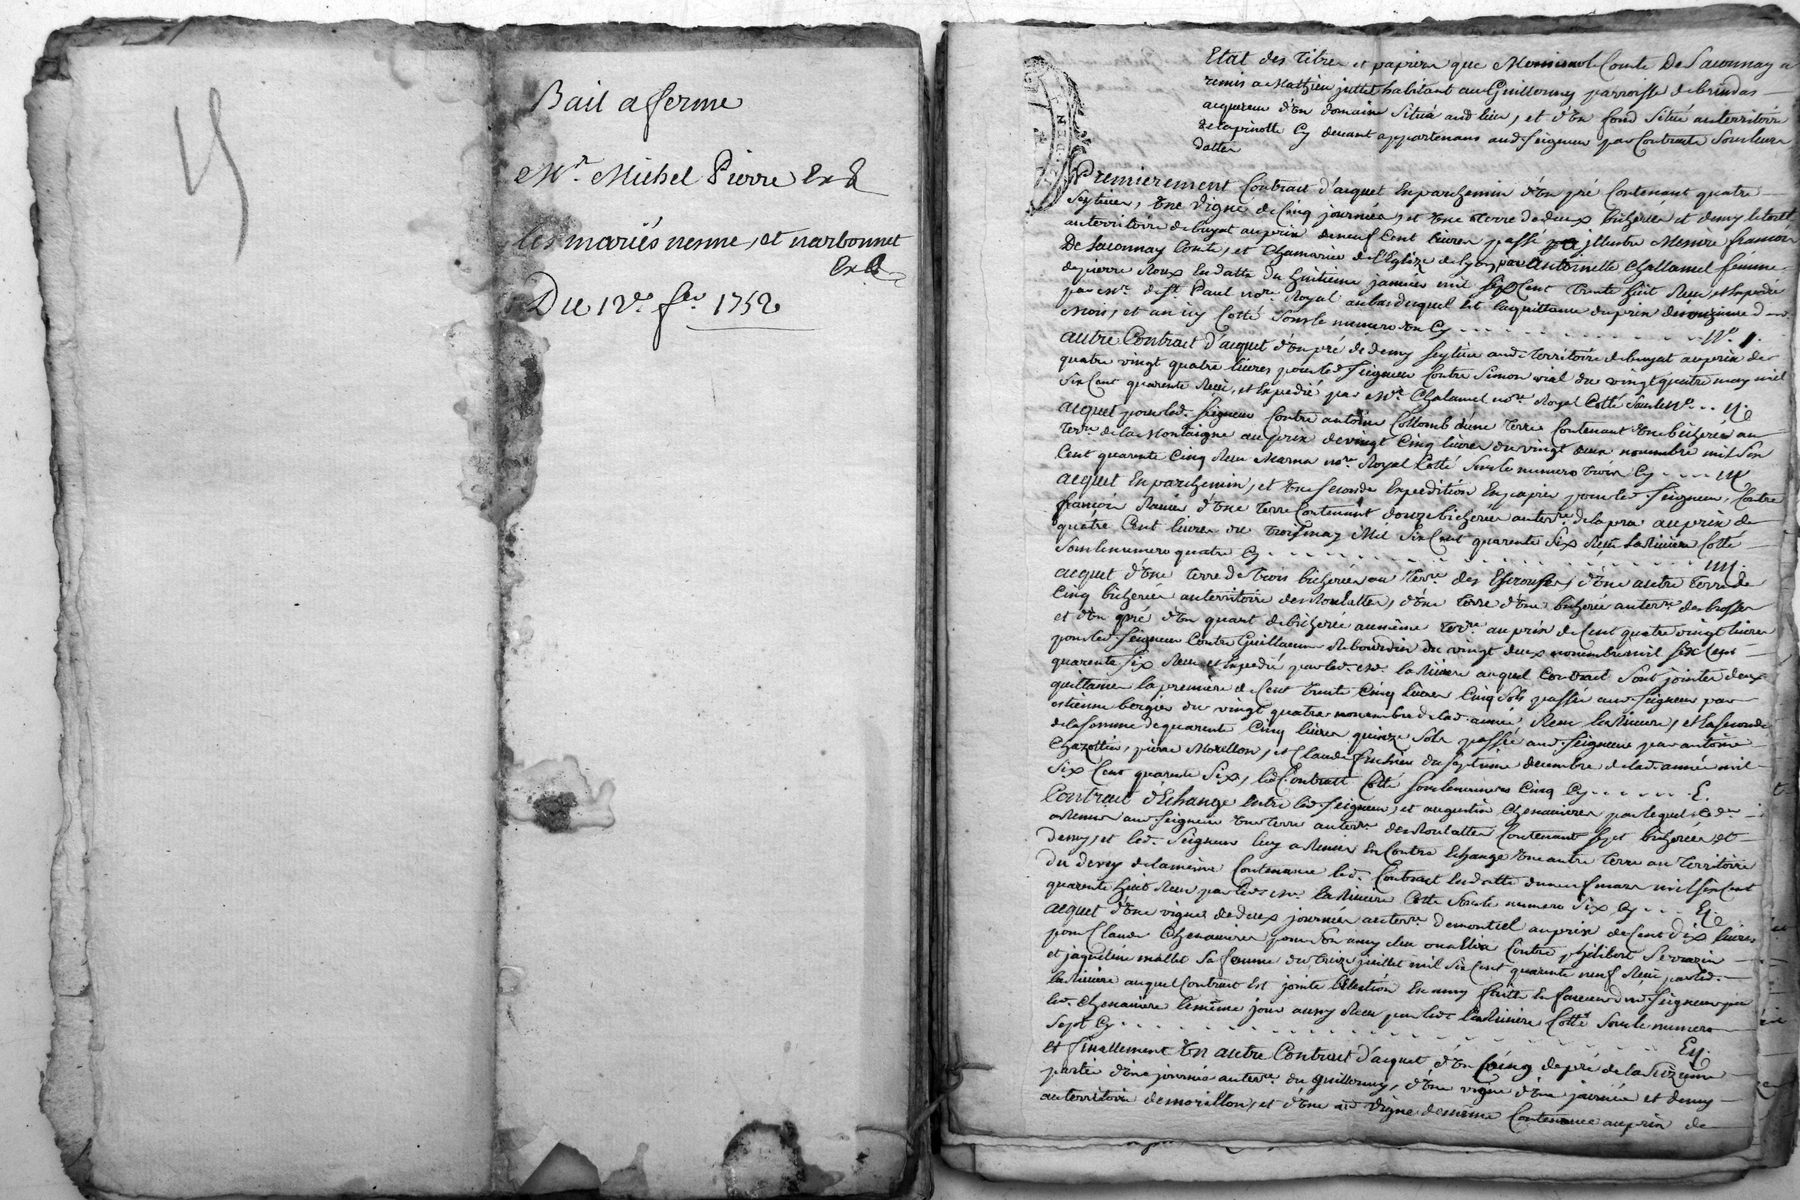 Bail a ferme
Mr. Michel Pierre
les mariés nenne, et narbonnet
Du 12e. fer. 1752
Etat des titres et papiers que Comte De Saconnay a
remis a Mathieu juttet habitant au Guillonny parroisse de brindas
acquereur d'un domaine situé aud. lieu, et d'un fond situé au territoire
de lapinotte cy devant appartenans aud. seigneur par Contracts
datter
Premierement Contrait d'acquet en parchemin d'un pré Contenant quatre
seytives, une vigne de Cinq journées, et une terre de deux bicherées et demy
au territoire de buyat au prix de neuf Cent livres passé illustre Messire françois
De Saconnay Comte, et Chamarier de l'Eglize de lyon, par Antoinette Challamel femme
de pierre Roux en datte du huitieme janvier mil six Cent trente huit Receu et Expedié
par Mr. de St. Paul nore. Royal au bas duquel est la quittance du prix du onzieme d.
mois, et an icy Cotté sous le numero un Cy . . . No. 1.
autre Contrait d'acquet d'un pré de demy seytive aud. territoire de buyat au prix de
quatre vingt quatre livres pour led. seigneur Contre Simon vial du vingt quatre may mil
six Cent quarente Receu, et Expedié par Mr. Chalamel nore. Royal Cotté sous le No. . . ij.
acquet pour led. seigneur Contre antoine Collomb d'une terre Contenant une bicherée au
terre. de la Montaigne au prix de vingt Cinq livres du vingt deux novembre mil six
Cent quarente Cinq Receu nore. Royal Cotté sous le numero trois Cy . . . iij
acquet En parchemin, et une seconde Expedition En papier pour led. seigneur, Contre
françois d'une terre Contenant douze bicherées au terre. de la pra au prix de
quatre Cent livres du trois may Mil six Cent quarente six Receu Lariviere Cotté
sous le numero quatre Cy . . . iiij.
acquet d'une terre de trois bicherées au terre. des d'une autre terre de
Cinq bicherées au territoire des Moulattes, d'une terre d'une bicherée au terre. des brosses
et d'un pré d'un quart de bicherée au même terre. au prix de Cent quatre vingt livres
pour led. seigneur Contre Guillaume Rebourdin du vingt deux novembre mil six Cent
quarente six Receu et Expedié par led. Mr. lariviere auquel Contrait sont jointes deux
quittances la premiere de Cent trente Cinq livres Cinq sols passée aud. seigneur par
estienne bergier du vingt quatre novembre de lad. année Receu lariviere, et la seconde
de la somme de quarente Cinq livres quinze sols passée aud. seigneur par antoine
Chazottier, pierre Morellon, et Claude du septieme decembre de lad. année mil
six Cent quarente six, led. Contrait Cotté sous le numero Cinq Cy . . . . E.
Contrait d'Echange Entre led. seigneur, et augustin Chenaviere par lequel
a Remis aud. seigneur une terre au terre. des Moulattes Contenant sept bicherées et
demy, et led. seigneur luy a Remis En Contre Echange une autre terre au territoire
du devey de la même Contenance led. Contrait En datte du neuf mars mil six Cent
quarente huit Receu par led. Mr. lariviere Cotté sous le numero six Cy . . .
acquet d'une vigne de deux journées au terre. de montiel au prix de Cent dix livres
pour Claude Chenaviere pour son amy Elu ou a Elire Contre philibert Serrazin
et jaqueline mallet sa femme du treize juillet mil six Cent quarente neuf Receu par led.
lariviere auquel Contrait Est jointe l'élection En amy faite En faveur dud. seigneur par
led. Chenaviere le même jour aussy Receu par led. lariviere Cotté sous le numero
sept Cy . . .
Et finallement un autre Contrait d'acquet d'un de pré de la sizieme
partie d'une journée au terre. du guillonny, d'une vigne d'une journée et demy
au territoire de morillon, et d'une vigne de même Contenance au prix de